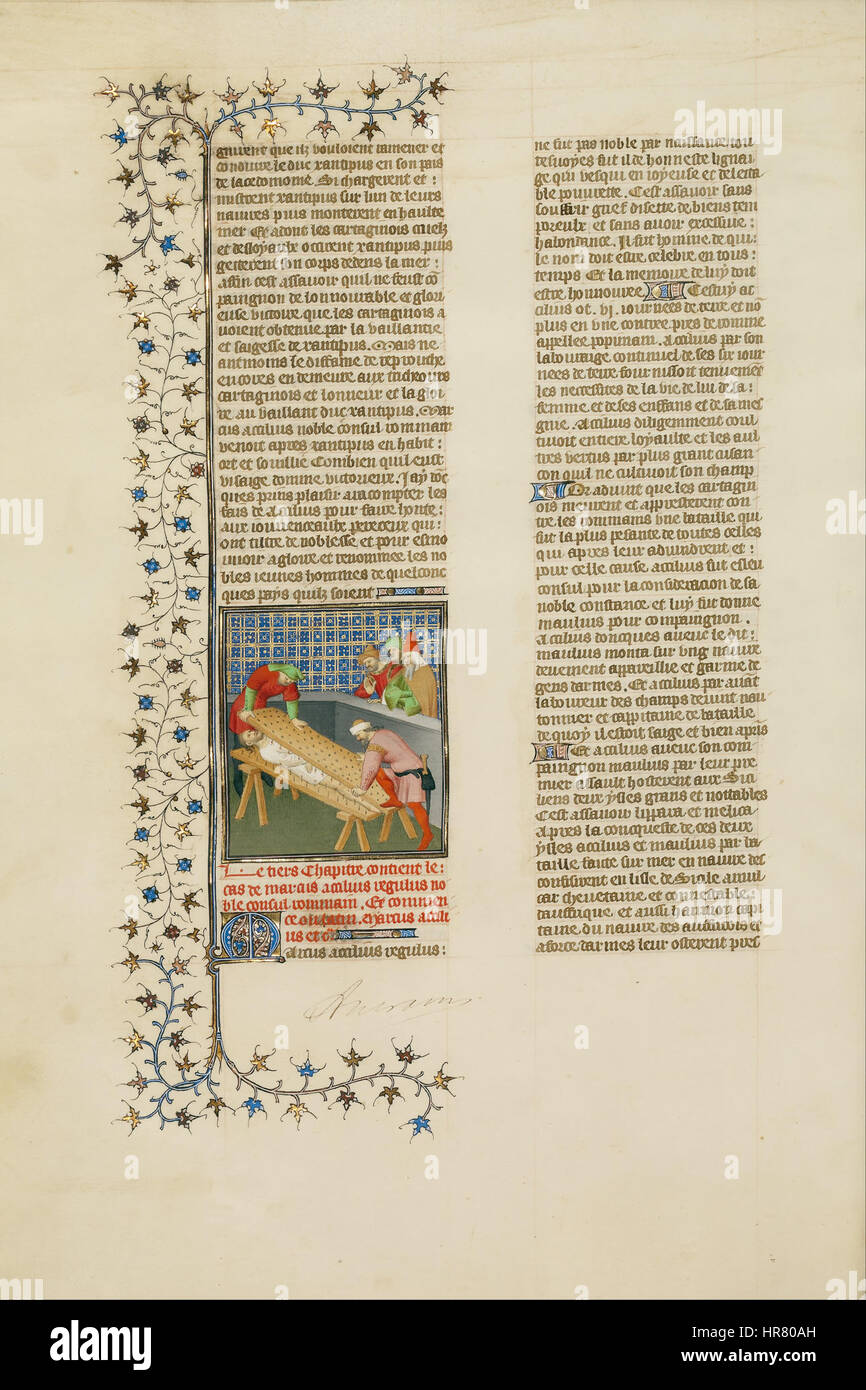 givrent que ilz vouloient ramener et
conduire le duc xantipus en son pais
de lacedomone. Si chargerent et :
mistrent xantipus sur lun de leurs
navires puis monterent en haulte
mer Et adont les cartaginois cruelz
et desloyaulx occirent xantipus puis
getterent son corps dedens la mer :
affin cest assavoir quil ne feust co
paingnon de lonnourable et glori
euse victoire que les cartaginois a
voient obtenue par la vaillantie
et saigesse de xantipus. Mais ne
antmoins le diffame de reprouche
encores en demeure aux tricheurs
cartaginois et lonneur et la gloi
re au vaillant duc xantipus. Mar
cus acilius noble consul rommain
venoit apres xantipus en habit :
ort et souillie Combien quil eust
visaige domme victorieux. Jay doc
ques prins plaisir a racompter les
fais de acilius pour faire honte :
aux iouvenceaulx pereceux qui :
ont tiltre de noblesse et pour esmo
uvoir a gloire et renommee les no
bles ieunes hommes de quelconc
ques pays quilz soient
Le tiers Chapitre contient le :
cas de marcus acilius regulus no
ble consul rommain. Et commen
ce ou latin. Marcus acili
us et cr
Marcus acilius regulus :
ne fut pas noble par naissance tou
tesvoyes fut il de honneste lignai
ge qui vesqui en ioyeuse et delecta
ble pouvrete. Cest assavoir sans
souffrir grief disette de biens tem
porelx et sans avoir excessive :
habondance. Il fut homme de qui :
le nom doit estre celebre en tous :
temps Et la memoire de luy doit
estre honnouree Cestuy ac
cilius ot .vi. iournees de terre et no
plus en une contree pres de romme
appellee popinani. Acilius par son
labouraige continuel de ses six iour
nees de terre fournissoit tenuement
les necessites de la vie de lui de sa :
femme et de ses enffans et de sa mes
gnie. Acilius diligemment coul
tivoit entiere loyaulte et les aul
tres vertus par plus grant cusan
con quil ne cultivoit son champ
Or advint que les cartagin
ois meurent et appresterent con
tre les rommains une bataille qui
fut la plus pesante de toutes celles
qui apres leur advindrent et :
pour celle cause acilius fut esleu
consul pour la consideracion de sa
noble constance et luy fut donne
manlius pour compaingnon.
Acilius doncques avecc le dit :
manlius monta sur ung navire
deuement appareillie et garnie de
gens darmes. Et acilius par avant
laboureur des champs devint nau
tonnier et cappitaine de bataille
de quoy il estoit saige et bien apris
Et acilius avecc son com
paingnon manlius par leur pre
mier assault hosterent aux Sici
liens deux ysles grans et nottables
Cest assavoir lippara et melica
Apres la conqueste de ces deux
ysles acilius et manlius par ba
taille faicte sur mer en navire des
confirent en lisle de Sicile amul
car chevetaine et connestable :
dauffrique et aussi hannon capi
taine du navire des auffricois et
a force darmes leur osterent pres
alamy
Image ID: HR80AH
www.alamy.com